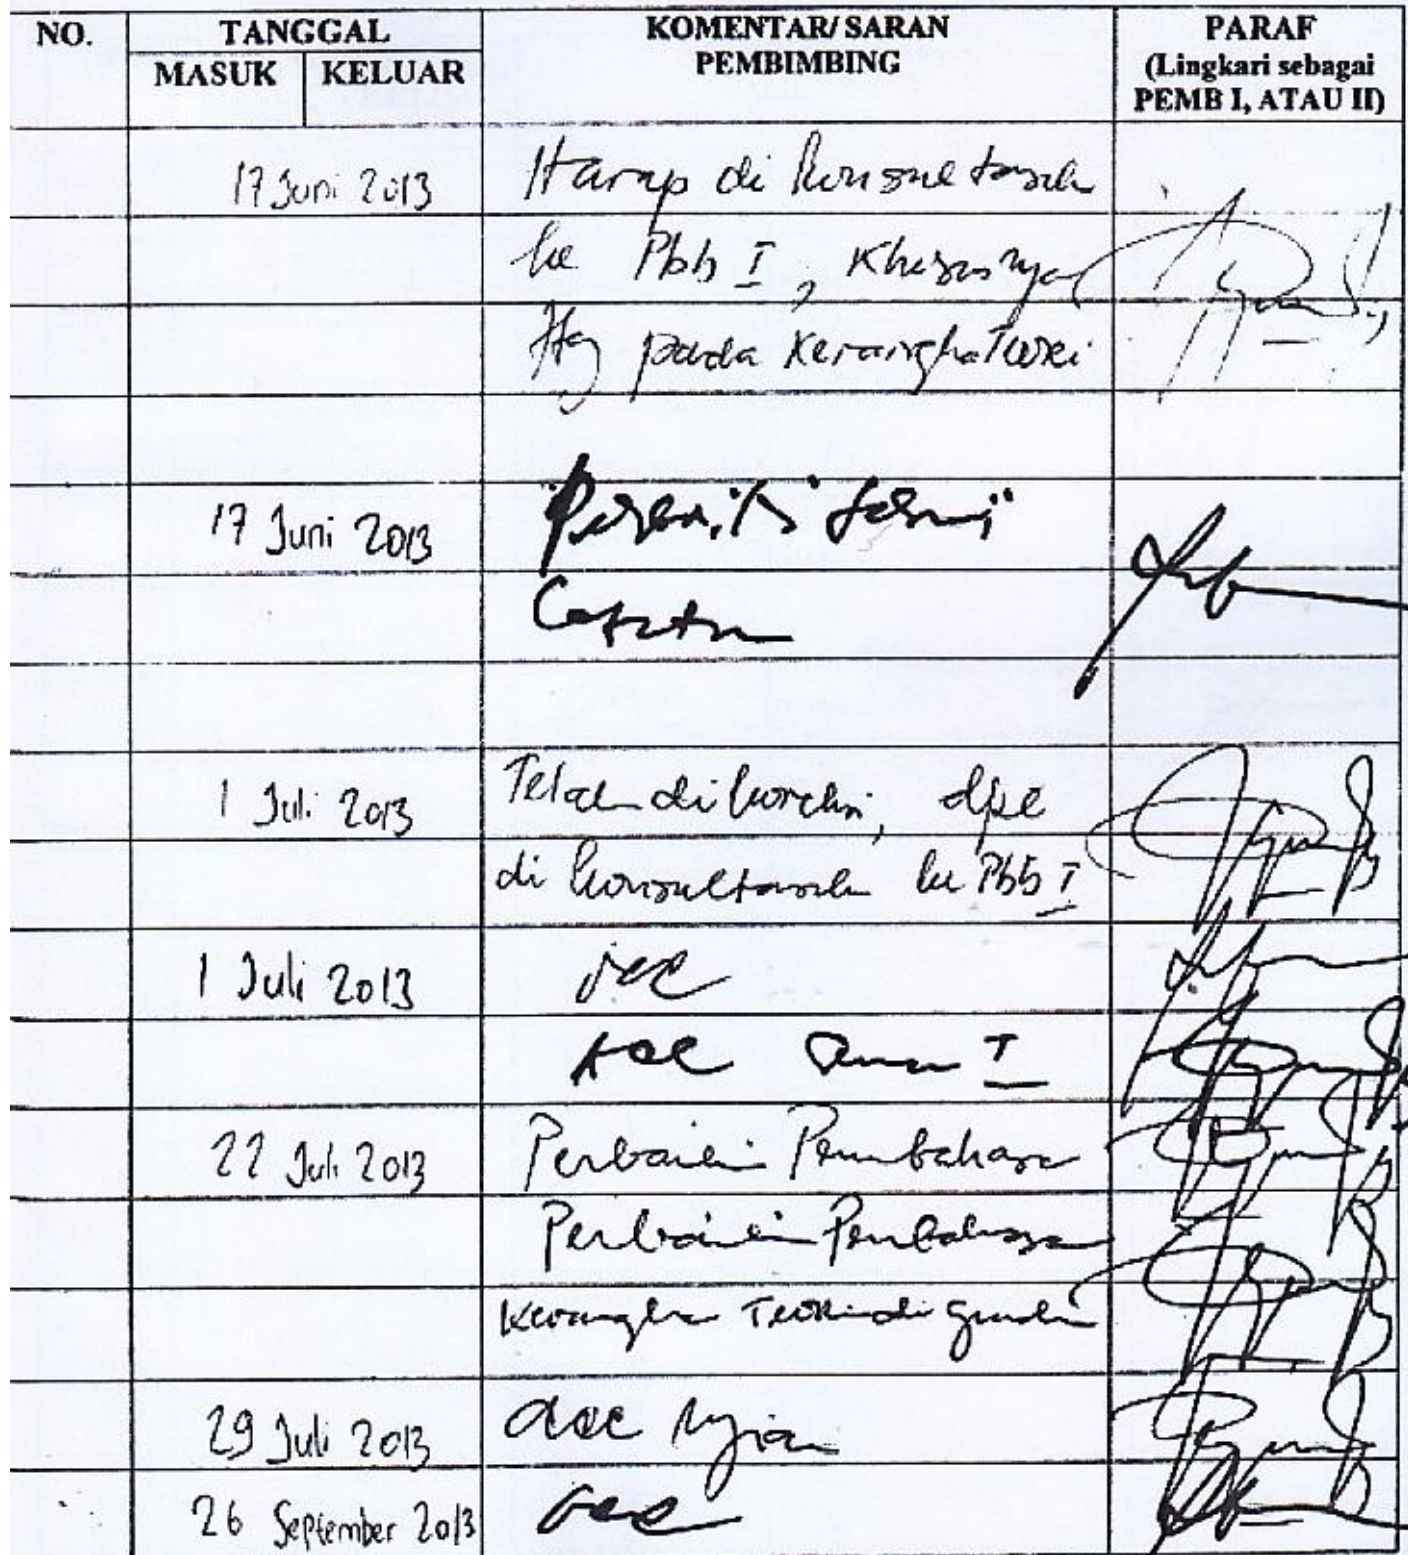 NO. TANGGAL KOMENTAR/ SARAN PARAF
MASUK KELUAR PEMBIMBING (Lingkari sebagai
PEMB I, ATAU II)
17 Juni 2013 Harap di konsultasik
ke Pbb I, Khususnya
Htg pada Kerangka Teori
17 Juni 2013 Perbaiki sesuai
Catatan
1 Juli 2013 Telah dikoreksi, dpt
di konsultasik ke Pbb I
1 Juli 2013 acc
Acc I
22 Juli 2013 Perbaiki Pembahasa
Perbaiki Pembahasa
Kerangka Teori di
29 Juli 2013 acc Ujian
26 September 2013 acc